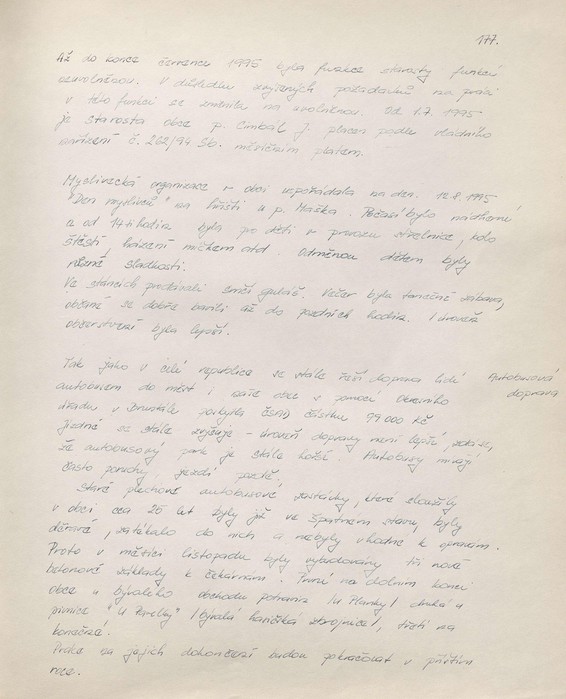 177.
Až do konce července 1995 byla funkce starosty funkcí
neuvolněnou. V důsledku zvýšených požadavků na práci
v této funkci se změnila na uvolněnou. Od 1.7.1995
je starosta obce p. Cimbál J. placen podle vládního
nařízení č. 262/94 Sb. měsíčním platem.
Myslivecká organizace v obci uspořádala na den 12.8.1995
"Den myslivců" na hřišti u p. Maška. Počasí bylo nádherné
a od 14tihodin byla pro děti v provozu střelnice, kolo
štěstí, házení míčkem atd. Odměnou dětem byly
různé sladkosti.
Ve stáncích prodávali srnčí guláš. Večer byla taneční zábava,
občané se dobře bavili až do pozdních hodin. I úroveň
občerstvení byla lepší.
Tak jako v celé republice se stále řeší doprava lidí
Autobusová
doprava
autobusem do měst i naše obec s pomocí obecního
úřadu v Bruntále poskytla ČSAD částku 99 000 Kč
jízdné se stále zvyšuje - úroveň dopravy není lepší, zdá se,
že autobusový park je stále horší. Autobusy mívají
často poruchy, jezdí pozdě.
Staré plechové autobusové zastávky, které sloužily
v obci cca 25 let byly již ve špatném stavu, byly
děravé, zatékalo do nich a nebyly vhodné k opravám.
Proto v měsíci listopadu byly vybudovány tři nové
betonové základy k čekárnám. První na dolním konci
obce u bývalého obchodu potravin /u Planky/ druhá u
pivnice "U Parolky" /bývalá hasičská zbrojnice/, třetí na
konečné.
Práce na jejich dokončení budou pokračovat v příštím
roce.